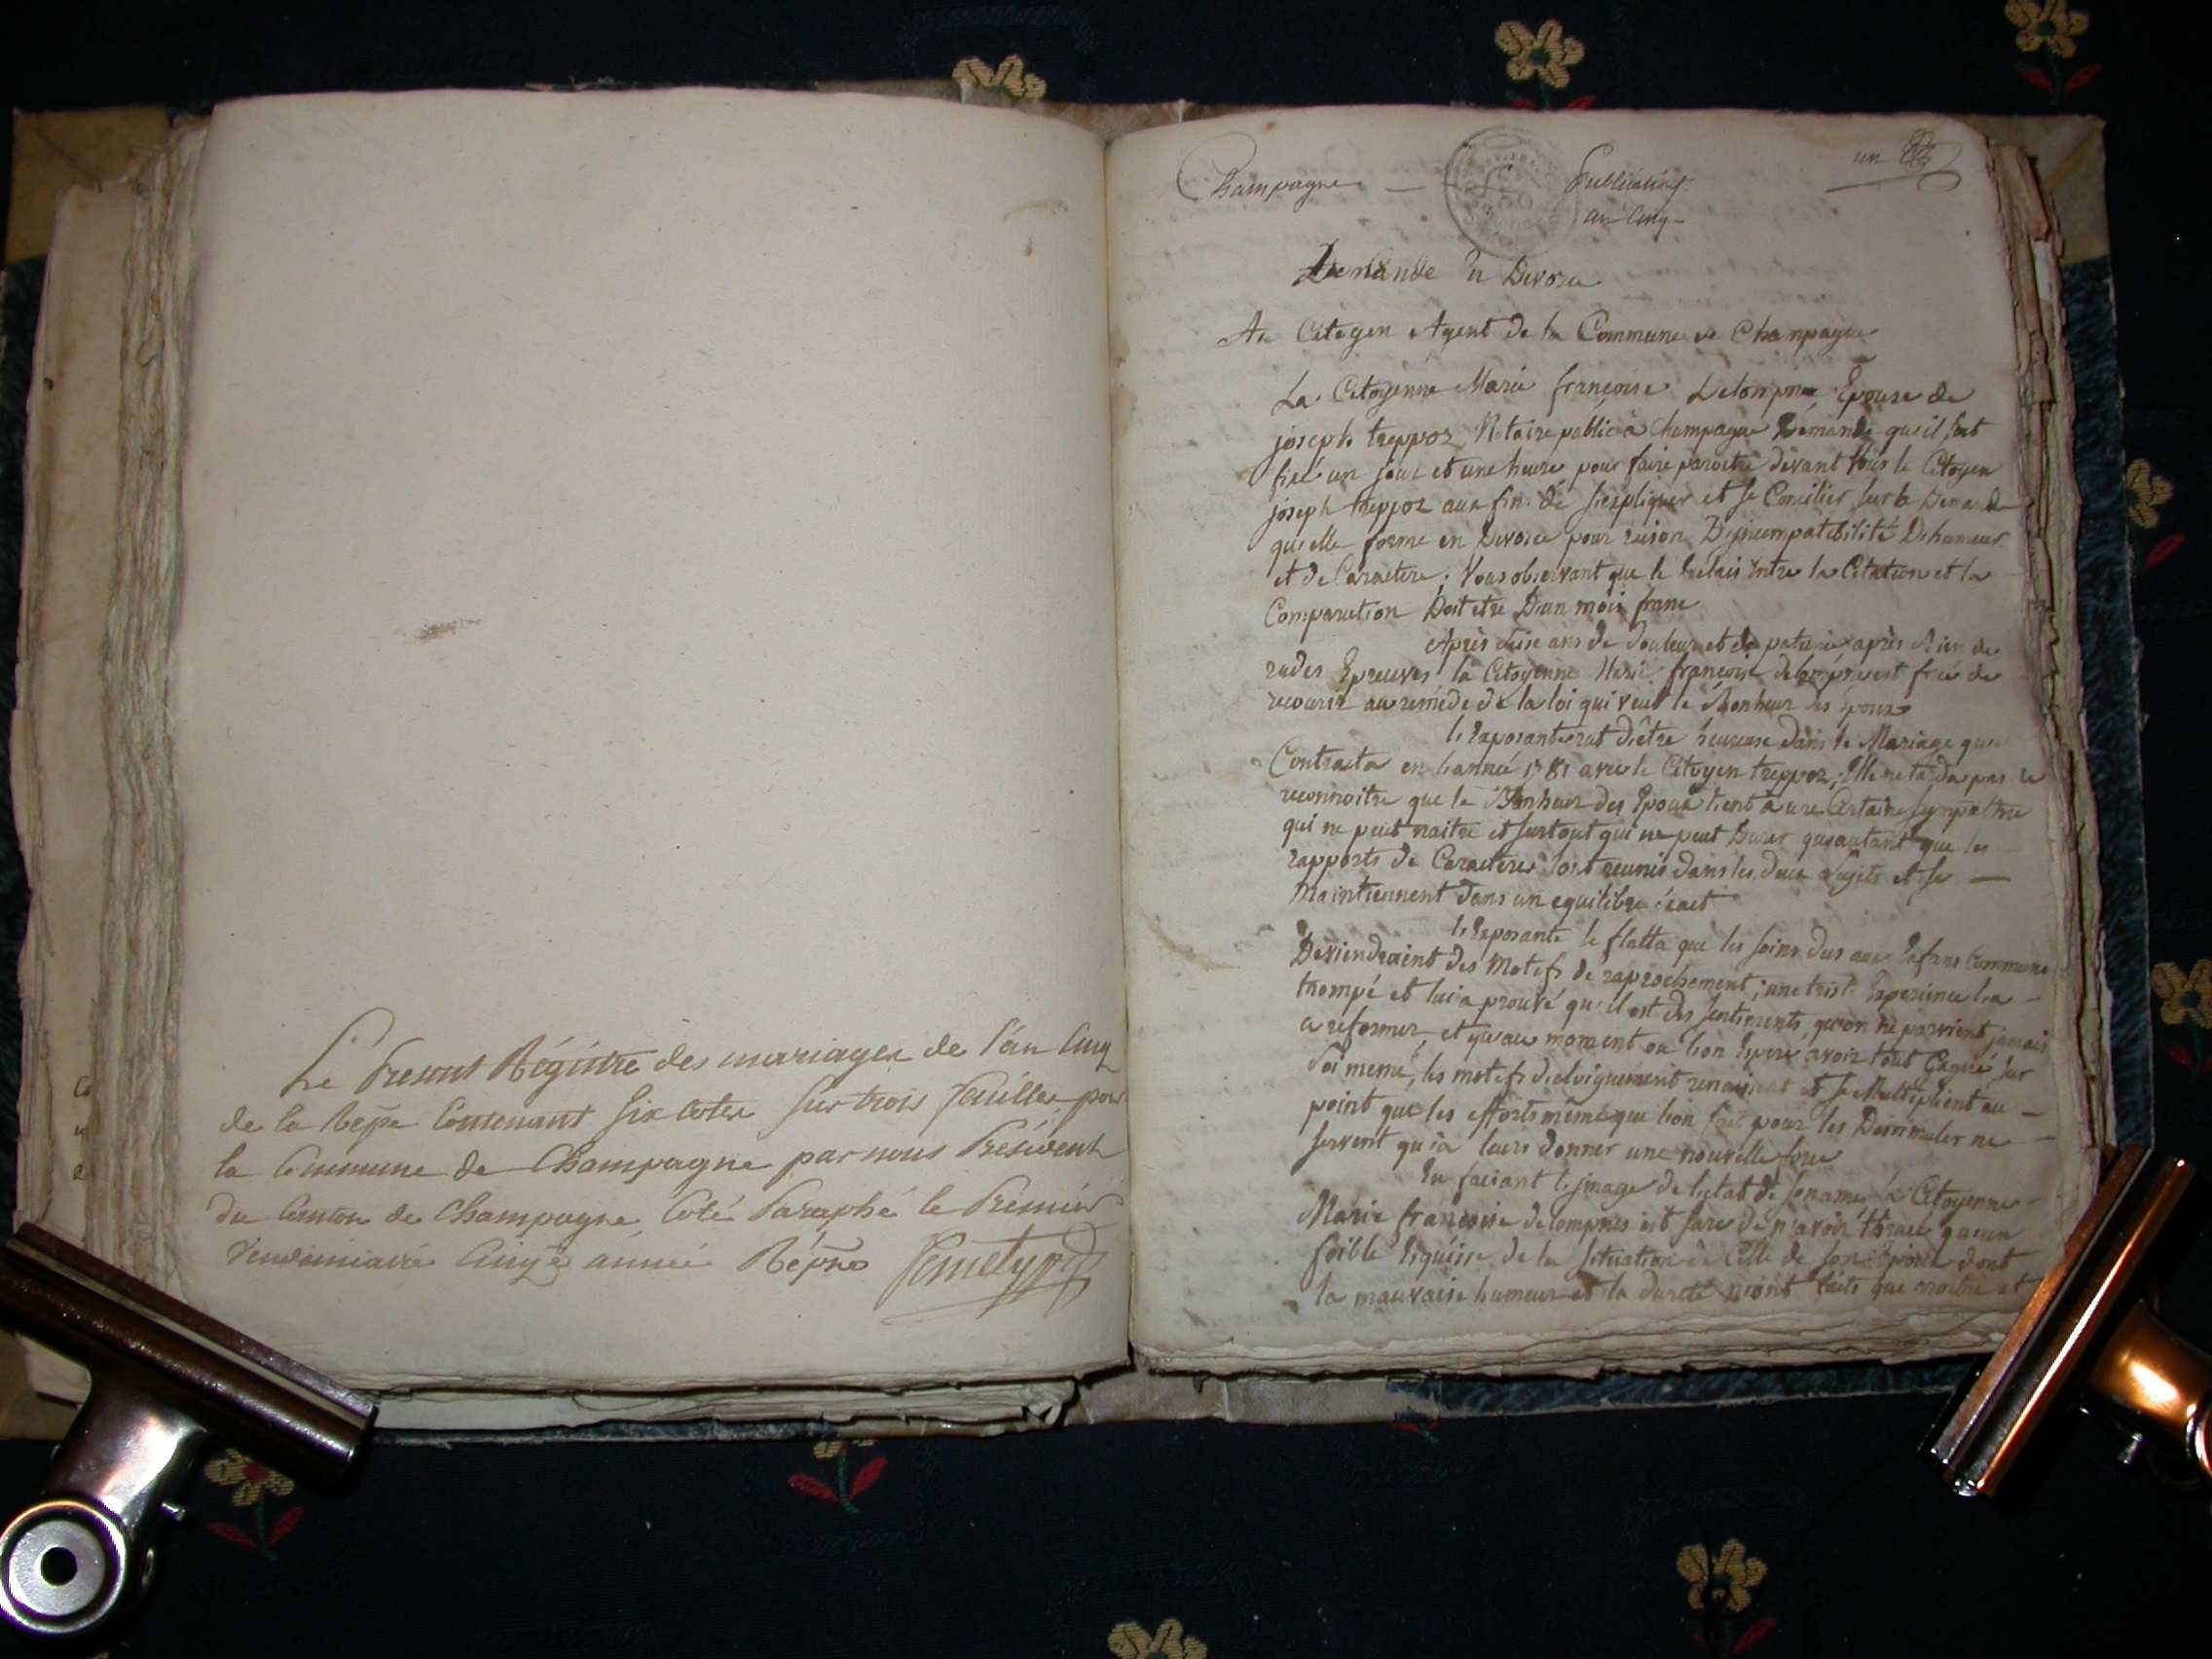 Le Present Régistre des mariages de l'an Cinq
de la Repe Contenant six cotes sur trois feuilles pour
la Commune de Champagne par nous Président
du Canton de Champagne Coté Paraphé le Premier
Vendemiaire Cinqe année Repne
Champagne
Publications
an Cinq
un
Demande en Divorce
Au Citoyen Agent de la Commune de Champagne
La Citoyenne Marie françoise Delompnes Epouse de
joseph treppoz Notaire public à Champagne Demande qu'il soit
fixé un jour et une heure pour faire paroitre devant Vous le Citoyen
joseph treppoz aux fins de s'expliquer et se Concilier sur la Demande
qu'elle forme en Divorce pour raison D'jncompatibilité D'humeur
et de Caractere; Vous observant que le Delais Entre la Citation et la
Comparution Doit etre D'un mois franc
Après seise ans de douleurs et de patience après bien de
rudes Epreuves la Citoyenne Marie françoise delompnes est forcé de
recourir au remède de la loi qui veut le Bonheur des époux
l'Exposante crut d'être heureuse dans le Mariage qu'elle
Contracta en l'année 1781 avec le Citoyen treppoz; Elle ne tarda pas de
reconnoitre que le Bonheur des Epoux tient à une Certaine sympathie
qui ne peut naitre et surtout qui ne peut Durer qu'autant que les
rapports de Caractères sont reunis dans les deux sujets et se
Maintiennent dans un equilibre éxact
l'Exposante se flatta que les soins dus aux Enfans Communs
Deviendroient des Motifs de raprochement; une triste Experience l'a
trompé et lui a prouvé qu'il est des sentiments qu'on ne parvient jamais
a reformer, et qu'au moment ou l'on Espere avoir tout Gagné sur
soi meme, les motifs d'eloignement renaissent et se Multiplient au
point que les efforts même que l'on fait pour les Dissimuler ne
servent qu'à leurs donner une nouvelle force
En faisant l'jmage de l'etat de son ame la Citoyenne
Marie françoise delompnes est sure de n'avoir tracé qu'un
foible Esquisse de la situation de Celle de son Epoux dont
la mauvaise humeur et la dureté n'ont faits que croitre et